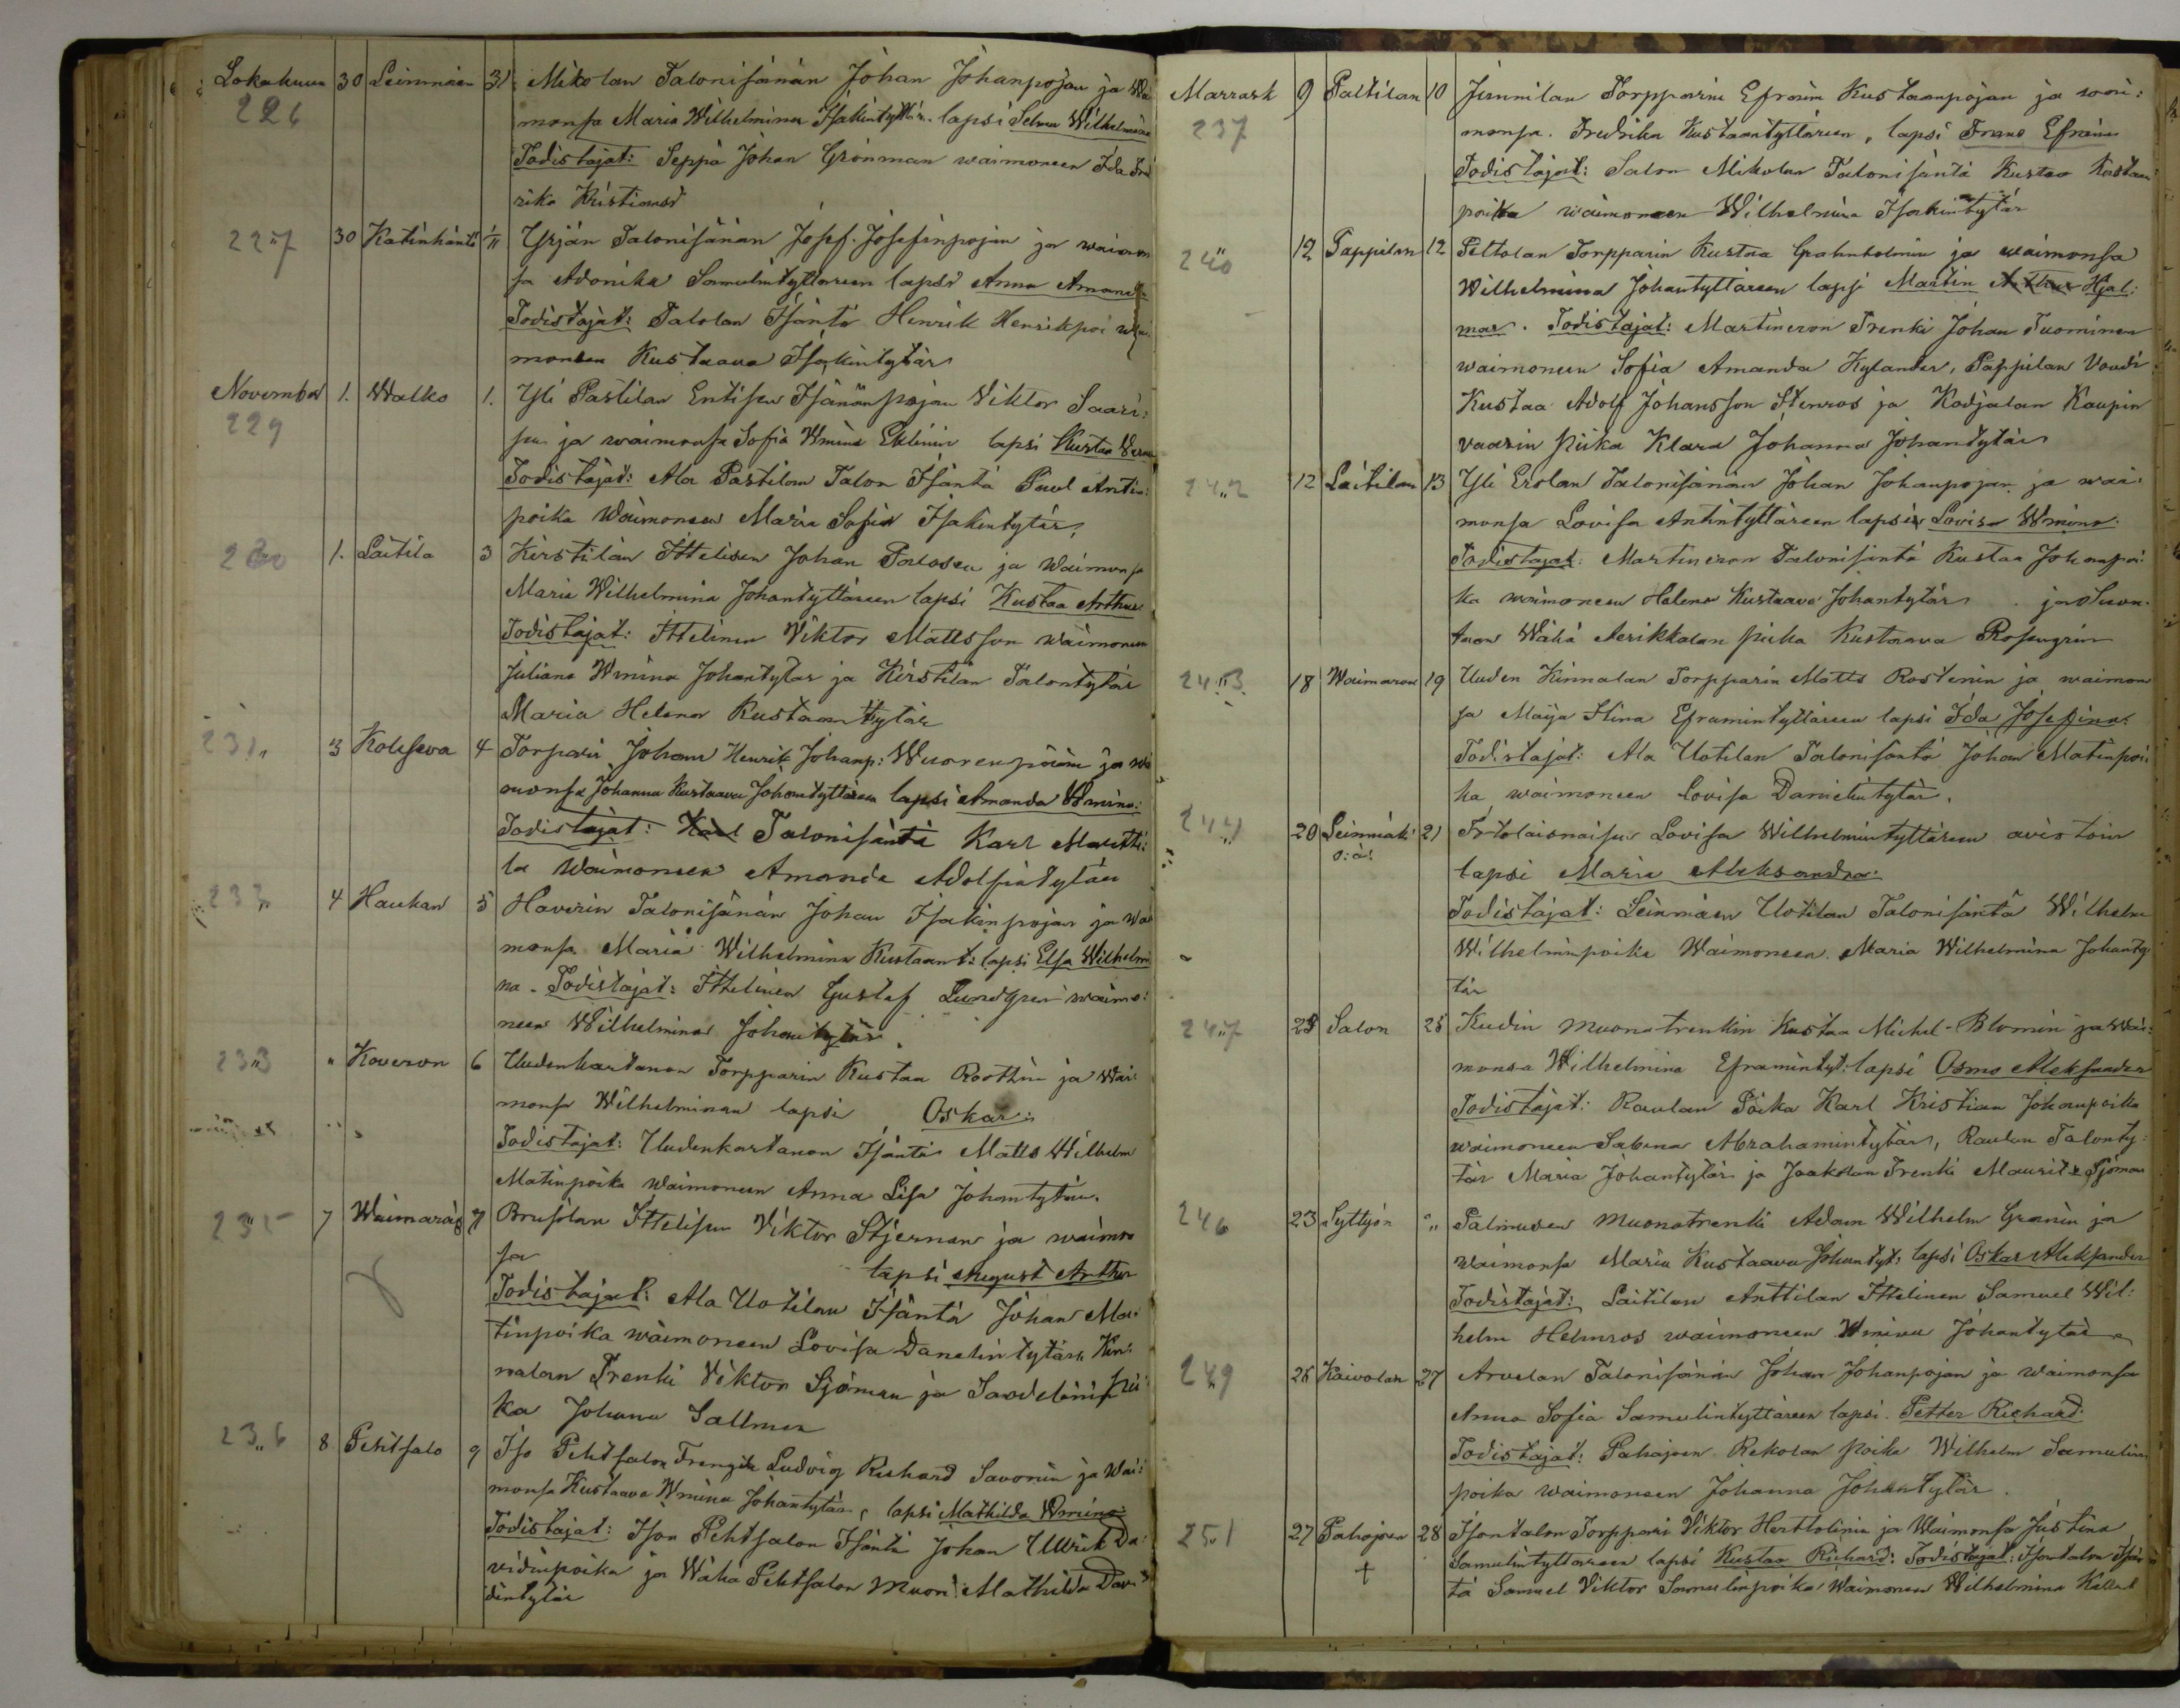 Lokakuun 30 Leinmäen 31 Mikolan Talonisänän Johan Johanpojan ja Wai
226 monsa Maria Wilhelmina Isakintyttär. lapsi Selma Wilhelmina
Todistajat: Seppä Johan Grönman waimoneen Ida Fred
rika Kristiansd
227 30 Katinhänta 1/11 Yrjän Talonisänän Josef Josefinpojan ja waimon
sa Adonika Samulintyttäreen lapsi Anna Amanda
Todistajat: Talolan Isäntä Henrik Henrikpoi wai
moneen Kustaava Isakintytär
November 1. Walko 1. Yli Pastilan Entisen Isänänpojan Viktor Saari:
229 sen ja waimonsa Sofia Wmina Eklinin lapsi Kustaa Verner
Todistajat: Ala Pastilan Talon Isäntä Paul Antin:
poika Waimoneen Maria Sofia Isakintytär,
230 1. Laitila 3 Kirstilän Ittelisen Johan Palosen ja Waimonsa
Maria Wilhelmina Johantyttäreen lapsi Kustaa Arthur
Todistajat: Ittelinen Viktor Mattsson waimoneen
Juliana Wmina Johantytär ja Kirstilän Talontytär
Maria Helena Kustaantytär
231 3 Kolsseva 4 Torpari Johan Henrik Johanp: Wuorenpään ja wai
monsa Johanna Kustaava Johantyttäreen lapsi Amanda Wmina:
Todistajat: Karl Talonisäntä Karl Martti:
la Waimoneen Amanda Adolfintytär
232 4 Haukan 5 Haverin Talonisänän Johan Isakinpojan ja wai
monsa Maria Wilhelmina Kustaant: lapsi Elsa Wilhelmi
na. Todistajat: Ittelinen Gustaf Lundgren waimo:
neen Wilhelmina Johantytär.
233 " Koveron 6 Uudenkartanon Torpparin Kustaa Rosthin ja Wai
monsa Wilhelminan lapsi Oskar:
Todistajat: Uudenkartanon Isäntä Matts Wilhelm
Matinpoika waimoneen Anna Lisa Johantytär.
235 7 Waimarä 7 Brusilan Ittelisen Viktor Stjernan ja waimon
sa lapsi August Arthur
Todistajat: Ala Uotilan Isäntä Johan Ma
tinpoika waimoneen Lovisa Danelintytär Kin:
nalan Trenki Viktor Sjöman ja pii
ka Johanna Sallmen
236 8 Pehtsalo 9 Iso Pehtsalon Trengin Ludvig Richard Savonin ja Wai:
monsa Kustaava Wmina Johantytär, lapsi Mathilda Wmina:
Todistajat: Ison Pehtsalon Isäntä Johan Ulrik Da
vidinpoika ja Wähä Pehtsalon Muori Mathilda Davi
dintytär
Marrask 9 Paltilan 10 Junnilan Torpparin Efraim Kustaanpojan ja woi:
237 monsa. Fredrika Kustaantyttäreen, lapsi Frans Efraim
Todistajat: Salon Mikolan Talonisäntä Kustaa Kustaan
poika waimoneen Wilhelmina Isakintytär
240 12 Pappilan 12 Peltolan Torpparin Kustaa Grahnholmin ja waimonsa
Wilhelmina Johantyttäreen lapsi Martin Arthur Hjal:
mar. Todistajat: Martineron Trenki Johan Tuominen
waimoneen Sofia Amanda Kylander, Pappilan Vouti
Kustaa Adolf Johansson Stenros ja Kodjalan Kaupin
vaarin piika Klara Johanna Johantytär
242 12 Laitilan 13 Yli Erolan Talonisänän Johan Johanpojan ja wai
monsa Lovisa Antintyttäreen lapsi Lovisa Wmina.
Todistajat: Martineron Talonisäntä Kustaa Johanpoi
ka waimoneen Helena Kustaava Johantytär ja Suon
taan Wähä Aerikkalan piika Kustaava Rosengrin
243 18 Waimaron 19 Uuden Kinnalan Torpparin Matts Rostenin ja waimon
sa Maija Stina Eframintyttäreen lapsi Ida Josefina:
Todistajat: Ala Uotilan Talonisäntä Johan Matinpoi
ka waimoneen Lovisa Danielintytär.
244 20 Leinmäki 21 Irtolaisnaisen Lovisa Wilhelmintyttäreen aviotoin
o: ä:
lapsi Maria Aleksandra.
Todistajat: Leinmäen Uotilan Talonisäntä Wilhelm
Wilhelminpoika Waimoneen Maria Wilhelmina Johanty
tär
247 23 Salon 25 Kudin Muonatrenkin Kustaa Michel Blomin ja Wai:
monsa Wilhelmina Eframintyt: lapsi Osmo Aleksander
Todistajat: Raulan Poika Karl Kristian Johanpoika
waimoneen Sabina Abrahamintytär, Raulan Talonty:
tär Maria Johantytär ja Jaakolan Trenki Maurits Sjöman
246 23 Syttyön " Palmuden Muonatrenki Adam Wilhelm Granin ja
waimonsa Maria Kustaava Johantyt: lapsi Oskar Aleksander
Todistajat: Laitilan Anttilan Ittelinen Samuel Wil:
helm Helenros waimoneen Wmina Johantytär
249 26 Kaivolan 27 Arvelan Talonisänän Johan Johanpojan ja waimonsa
Anna Sofia Samulintyttäreen lapsi. Petter Richard.
Todistajat: Pahajoen Rekolan poika Wilhelm Samulin
poika waimoneen Johanna Johantytär.
251 27 Pahojoen 28 Isontalon Torppari Viktor Herttolinin ja Waimonsa Justina
Samulintyttäreen lapsi Kustaa Richard: Todistajat: Isontalon Isän
tä Samuel Viktor Samulinpoika Waimoneen Wilhelmina